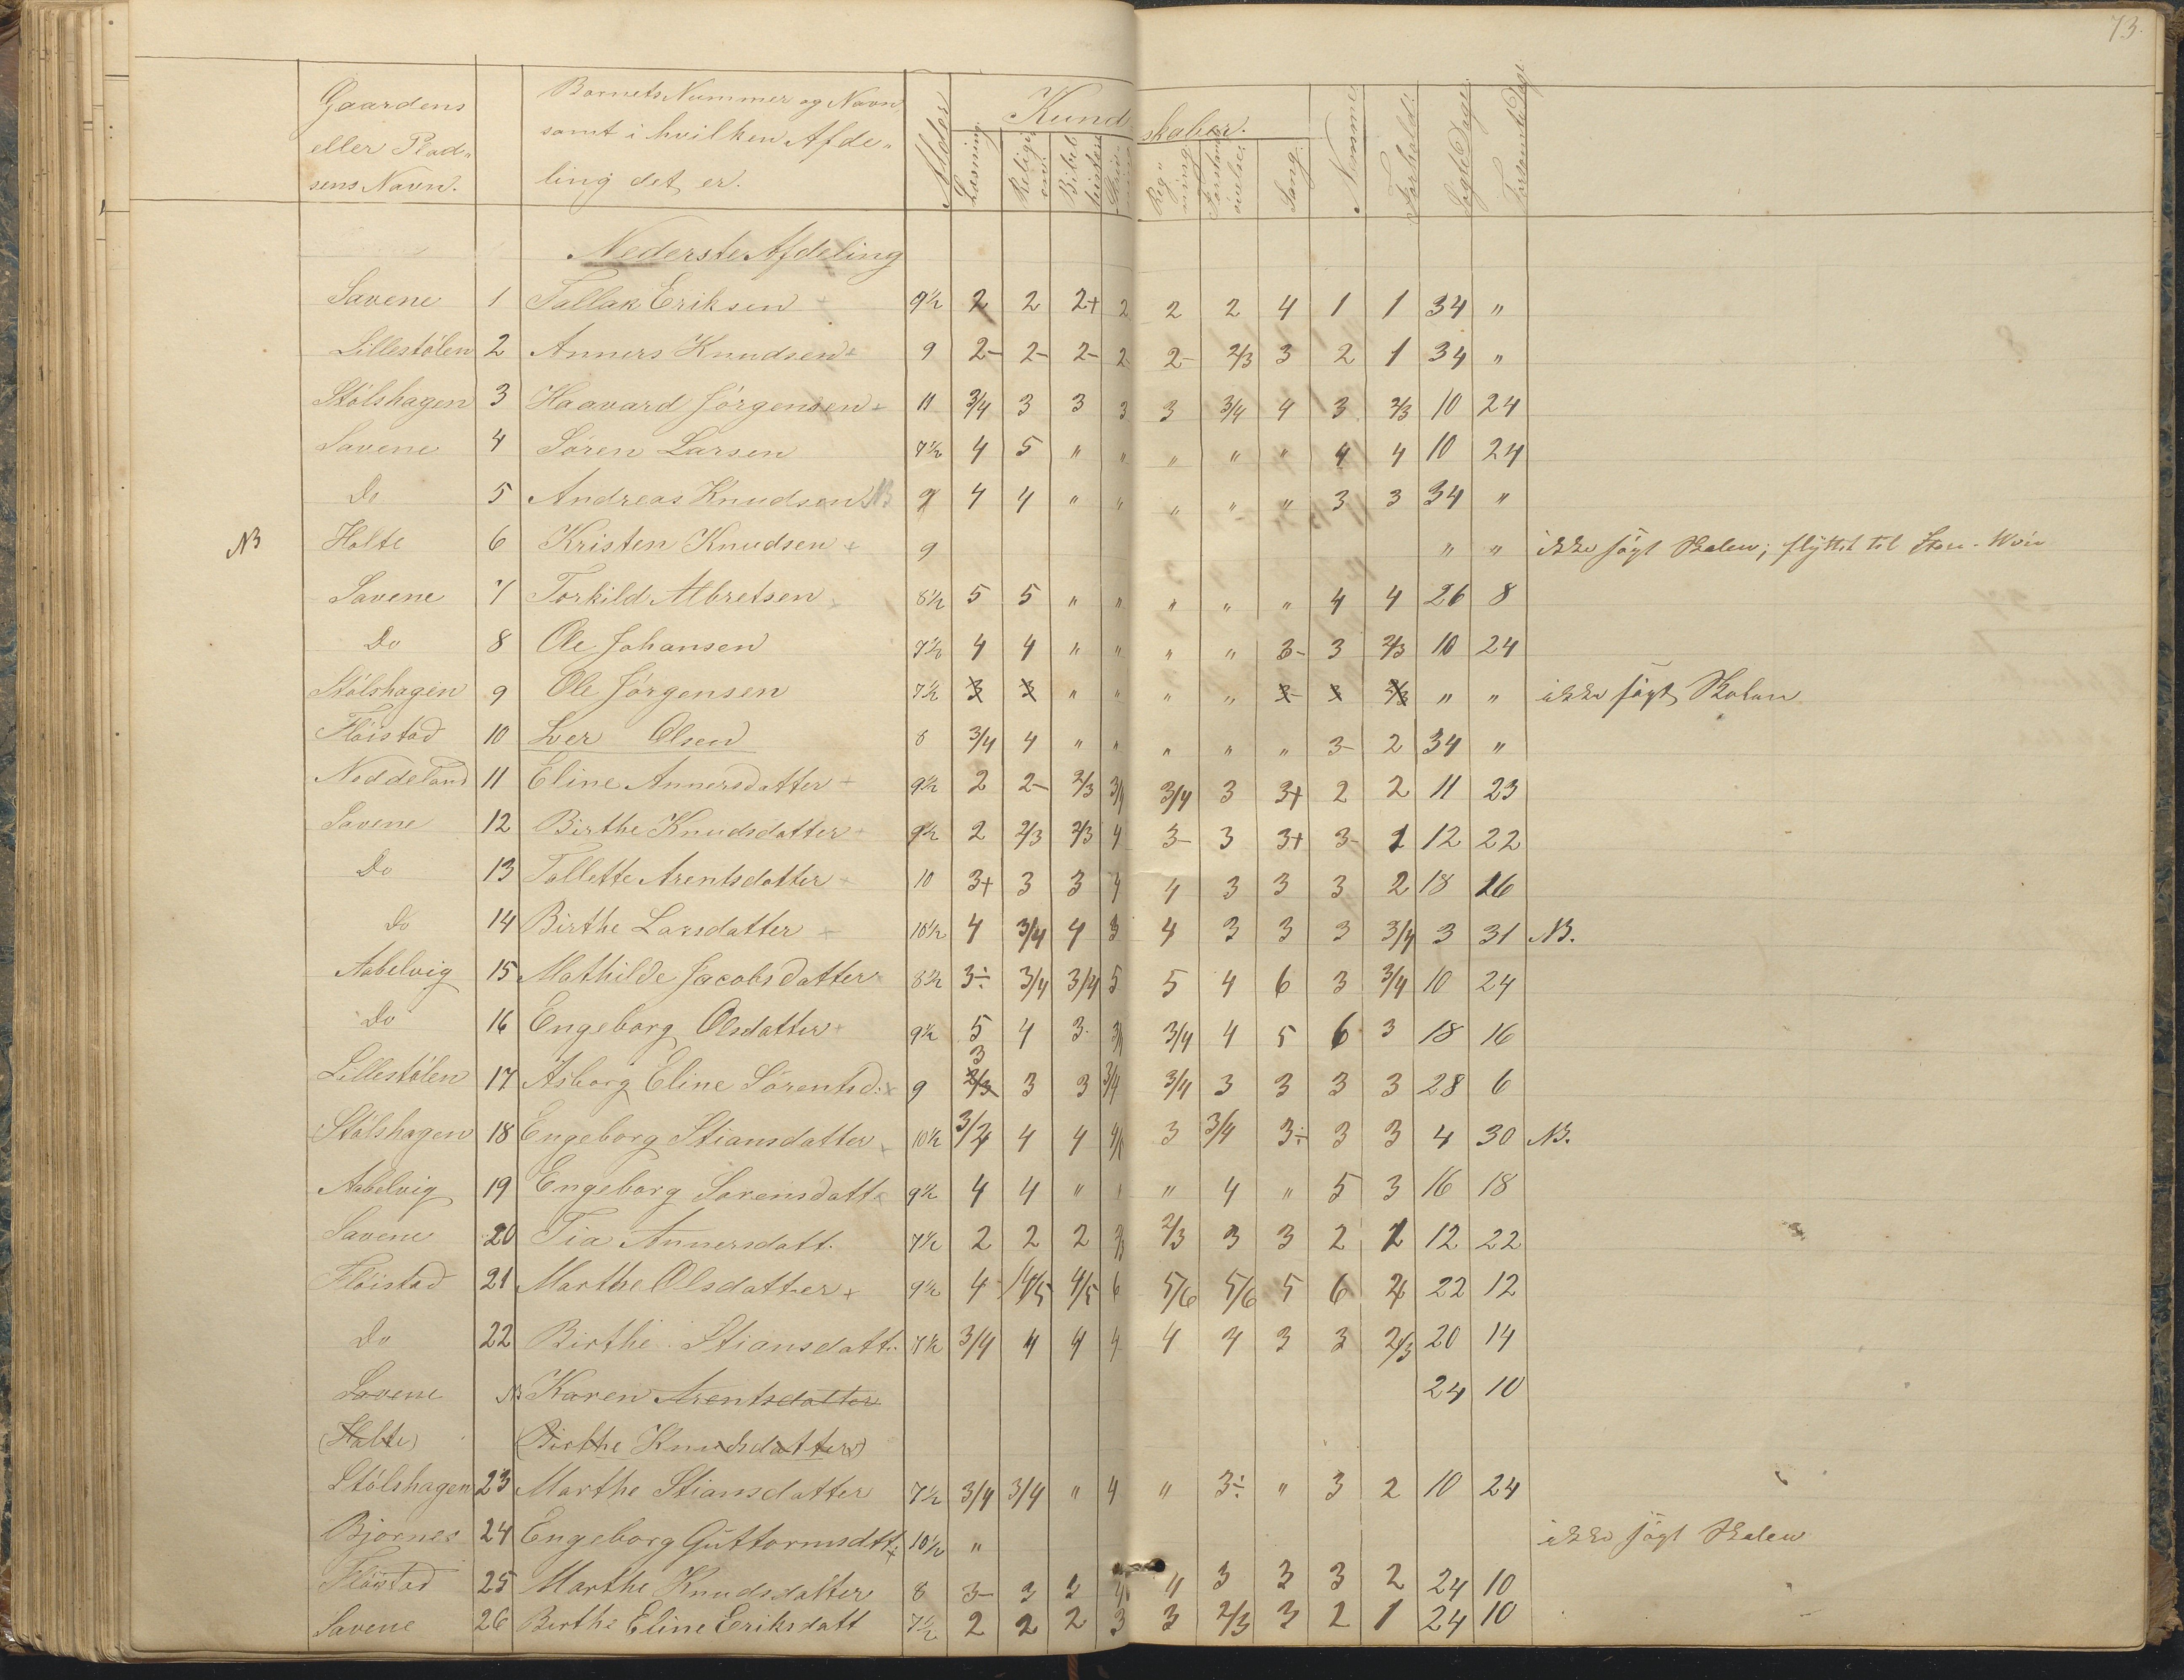 73.
Gaardens eller Plad„ sens Navn.
Barnets Nummer og Navn, samt i hvilken Afde„ ling det er.
Alder
Kund skaber.
Læsning. Religi„ on. Bibel historie Skriv„ ning Reg„ ning. Forstands øvelse. Sang. Nemme. Forhold. Søgte Dage. Forsømte Dage.
Nederste Afdeling
Savene 1 Tallak Eriksen + 9½ 2 2 2+ 2 2 2 4 1 1 34 "
Lillestölen 2 Anners Knudsen + 9 2- 2- 2- 2- 2- 2/3 3 2 1 34 "
Stölshagen 3 Haavard Jörgensen + 11 3/4 3 3 3 3 3/4 4 3 2/3 10 24
Savene 4 Sören Larsen 7½ 4 5 " " " " " 4 4 10 24
Do 5 Andreas Knudsen NB 9 4 4 " " " " " 3 3 34 "
NB Holte 6 Kristen Knudsen + 9 " " ikke søgt Skolen; flyttet til
Savene 7 Torkild Albretsen 8½ 5 5 " " " " " 4 4 26 8
Do 8 Ole Johansen 7½ 4 4 " " " " 3- 3 2/3 10 24
Stölshagen 9 Ole Jörgensen 7½ 3 3 " " " " 3- 3 2/3 " " ikke søgt Skolen
Flöistad 10 Iver Olsen 8 3/4 4 " " " " " 3- 2 34 "
Noddeland 11 Eline Annersdatter + 9½ 2 2- 2/3 3/4 3/4 3 3+ 2 2 11 23
Savene 12 Birthe Knudsdatter + 9½ 2 2/3 2/3 4 3- 3 3+ 3- 1 12 22
Do 13 Tallette Arentsdatter + 10 3+ 3 3 4 4 3 3 3 2 18 16
Do 14 Birthe Larsdatter + 10½ 4 3/4 4 3 4 3 3 3 3/4 3 31 NB.
Aabelvig 15 Mathilde Jacobsdatter 8½ 3÷ 3/4 3/4 5 5 4 6 3 3/4 10 24
Do 16 Engeborg Olsdatter + 9½ 5 4 3 3/4 3/4 4 5 6 3 18 16
Lillestölen 17 Asborg Eline Sörentsd: + 9 3 2/3 3 3 3/4 3/4 3 3 3 3 28 6
Stölshagen 18 Engeborg Stiansdatter + 10½ 3/4 4 4 4/5 3 3/4 3÷ 3 3 4 30 NB.
Aabelvig 19 Engeborg Sorensdatt + 9½ 4 4 " " " 4 " 5 3 16 18
Savene 20 Tia Annersdatt. 7½ 2 2 2 2/3 2/3 3 3 2 1 12 22
Flöistad 21 Marthe Olsdatter + 9½ 4 4/5 4/5 6 5/6 5/6 5 6 4 22 12
Do 22 Birthe Stiansdatt. 7½ 3/4 4 4 4 4 4 3 3 2/3 20 14
Savene NB Karen Arentsdatter 24 10
(Holte) (Birthe Knudsdatter)
Stölshagen 23 Marthe Stiansdatter 7½ 3/4 3/4 " 4 " 3÷ " 3 2 10 24
Bjornes 24 Engeborg Guttormsdtt. + 10½ " ikke søgt Skolen
Flöistad 25 Marthe Knudsdatter 8 3- 3 3 4 4 3 3 3 2 24 10
Savene 26 Birthe Eline Eriksdatt 7½ 2 2 2 3 3 2/3 3 2 1 24 10